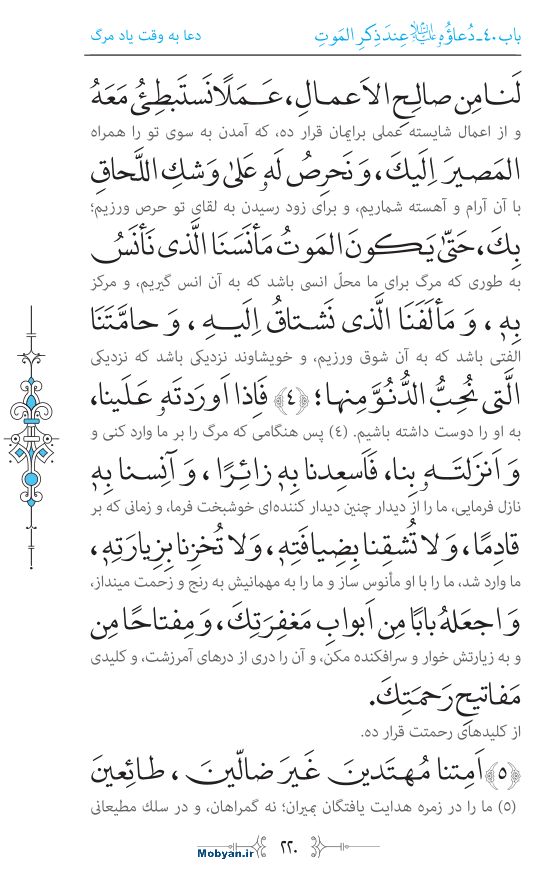 باب ۴۰ـ دُعاؤُه عِندَ ذِكرِ المَوتِ
دعا به وقت یاد مرگ
لَنا مِن صالِحِ الاَعمالِ، عَمَلًا نَستَبطِئُ مَعَهُ
و از اعمال شایسته عملی برایمان قرار ده، که آمدن به سوی تو را همراه
المَصیرَ اِلَیكَ، وَ نَحرِصُ لَهٖ عَلیٰ وَشكِ اللَّحاقِ
با آن آرام و آهسته شماریم، و برای زود رسیدن به لقای تو حرص ورزیم؛
بِكَ، حَتّیٰ یَكونَ المَوتُ مَأنَسَنَا الَّذی نَأنَسُ
به طوری که مرگ برای ما محلّ انسی باشد که به آن انس گیریم، و مرکز
بِهٖ، وَ مَألَفَنَا الَّذی نَشتاقُ اِلَیهِ، وَ حامَّتَنَا
الفتی باشد که به آن شوق ورزیم، و خویشاوند نزدیکی باشد که نزدیکی
الَّتی نُحِبُّ الدُّنُوَّ مِنها؛ ﴿٤﴾ فَاِذا اَورَدتَهٗ عَلَینا،
به او را دوست داشته باشیم. (۴) پس هنگامی که مرگ را بر ما وارد کنی و
وَ اَنزَلتَهٗ بِنا، فَاَسعِدنا بِهٖ زائِرًا، وَ آنِسنا بِهٖ
نازل فرمایی، ما را از دیدار چنین دیدار کننده‌ای خوشبخت فرما، و زمانی که بر
قادِمًا، وَ لا تُشقِنا بِضِیافَتِهٖ، وَ لا تُخزِنا بِزِیارَتِهٖ،
ما وارد شد، ما را با او مأنوس ساز و ما را به مهمانیش به رنج و زحمت مینداز،
وَ اجعَلهُ بابًا مِن اَبوابِ مَغفِرَتِكَ، وَ مِفتاحًا مِن
و به زیارتش خوار و سرافکنده مکن، و آن را دری از درهای آمرزشت، و کلیدی
مَفاتیحِ رَحمَتِكَ.
از کلیدهای رحمتت قرار ده.
﴿٥﴾ اَمِتنا مُهتَدینَ غَیرَ ضالّینَ، طائِعینَ
(۵) ما را در زمره هدایت یافتگان بمیران؛ نه گمراهان، و در سلك مطیعانی
۲۲۰
Mobyan.ir